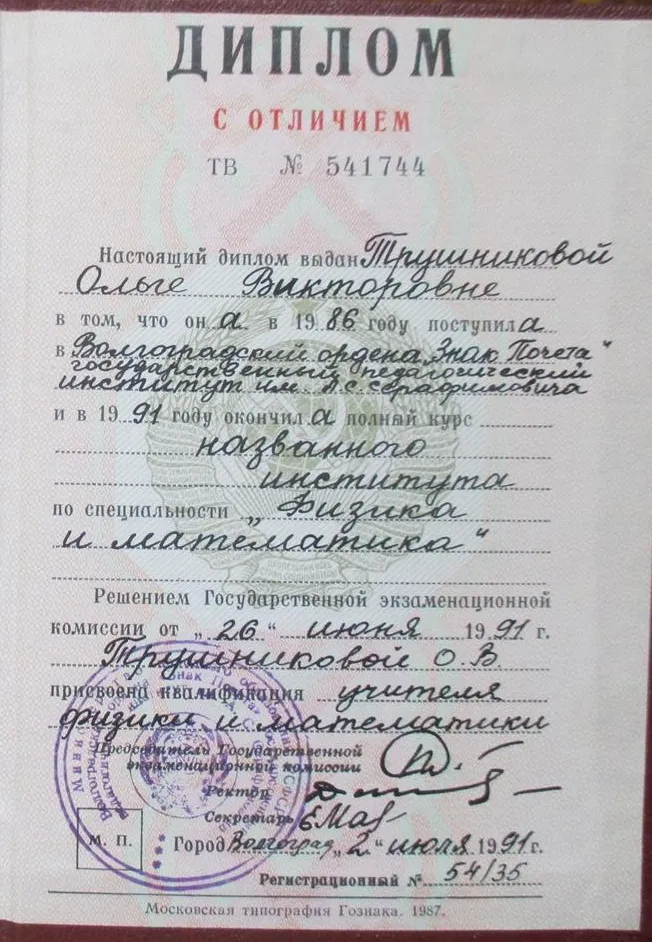 ДИПЛОМ
С ОТЛИЧИЕМ
ТВ № 541744
Настоящий диплом выдан Трушниковой
Ольге Викторовне
в том, что он а в 1986 году поступил а
в Волгоградский ордена „Знак Почета“
государственный педагогический
институт им. А.С. Серафимовича
и в 1991 году окончил а полный курс
названного
института
по специальности „Физика
и математика“
Решением Государственной экзаменационной
комиссии от „26“ июня 1991 г.
Трушниковой О.В.
присвоена квалификация учителя
физики и математики
Председатель Государственной
экзаменационной комиссии
Ректор
Секретарь
М. П.
Город Волгоград „2“ июля 1991 г.
Регистрационный № 54/35
Московская типография Гознака. 1987.